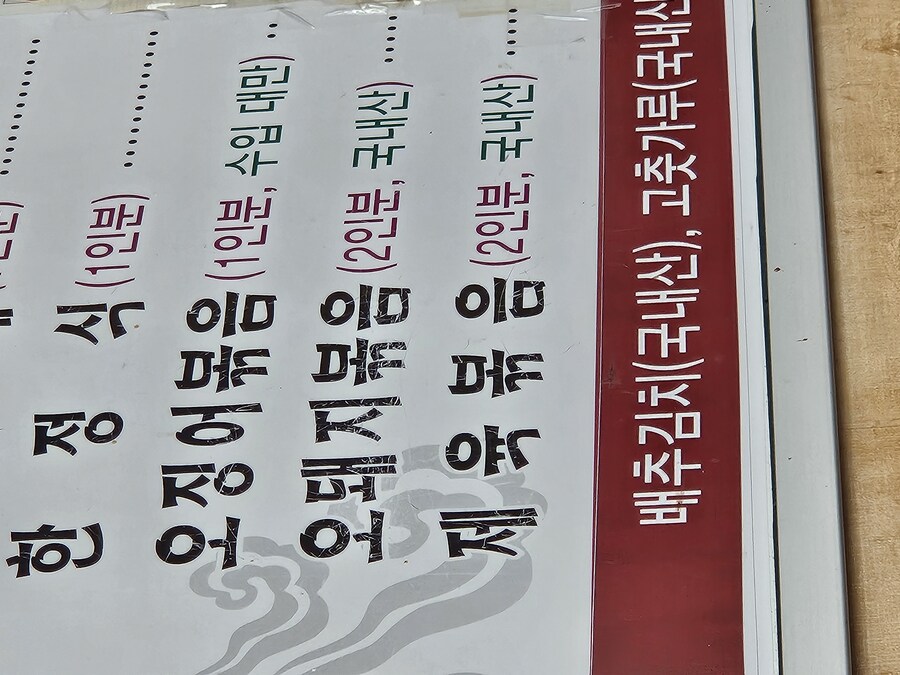 한 정 식 (1인분) ..........
오징어볶음 (1인분, 수입 대만) ..
오돼지볶음 (2인분, 국내산) ....
제 육 볶 음 (2인분, 국내산) ....
배추김치(국내산), 고춧가루(국내산